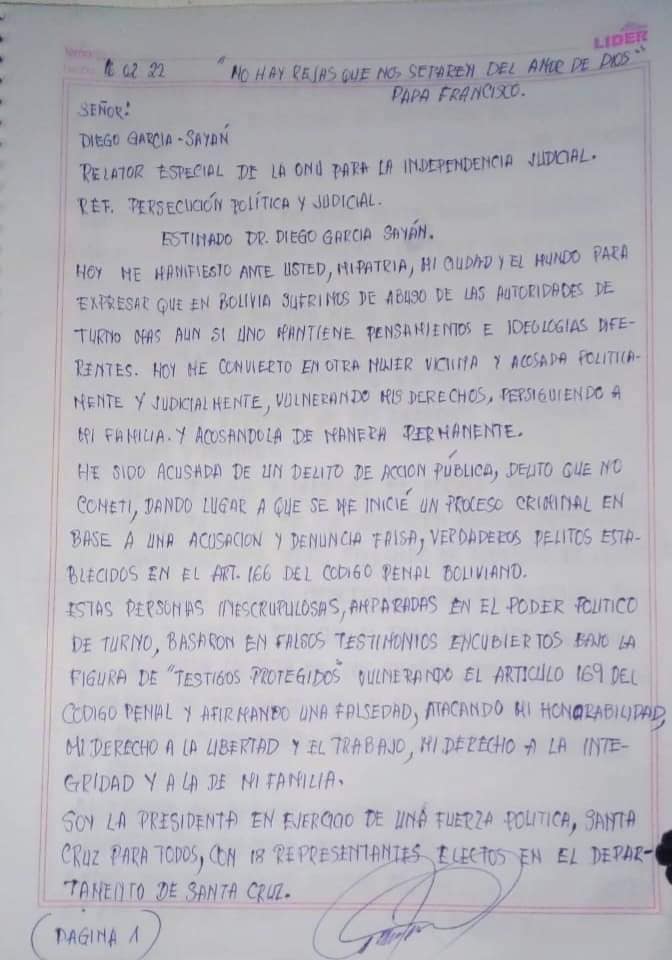 LIDER
16 02 22 "NO HAY REJAS QUE NOS SEPAREN DEL AMOR DE DIOS"
PAPA FRANCISCO.
SEÑOR:
DIEGO GARCIA-SAYÁN
RELATOR ESPECIAL DE LA ONU PARA LA INDEPENDENCIA JUDICIAL.
REF. PERSECUCIÓN POLÍTICA Y JUDICIAL.
ESTIMADO DR. DIEGO GARCIA SAYÁN.
HOY ME MANIFIESTO ANTE USTED, MI PATRIA, MI CIUDAD Y EL MUNDO PARA
EXPRESAR QUE EN BOLIVIA SUFRIMOS DE ABUSO DE LAS AUTORIDADES DE
TURNO MAS AUN SI UNO MANTIENE PENSAMIENTOS E IDEOLOGIAS DIFE-
RENTES. HOY ME CONVIERTO EN OTRA MUJER VICTIMA Y ACOSADA POLITICA-
MENTE Y JUDICIALMENTE, VULNERANDO MIS DERECHOS, PERSIGUIENDO A
MI FAMILIA. Y ACOSANDOLA DE MANERA PERMANENTE.
HE SIDO ACUSADA DE UN DELITO DE ACCION PÚBLICA, DELITO QUE NO
COMETI, DANDO LUGAR A QUE SE ME INICIÉ UN PROCESO CRIMINAL EN
BASE A UNA ACUSACION Y DENUNCIA FALSA, VERDADEROS DELITOS ESTA-
BLECIDOS EN EL ART. 166 DEL CODIGO PENAL BOLIVIANO.
ESTAS PERSONAS INESCRUPULOSAS, AMPARADAS EN EL PODER POLITICO
DE TURNO, BASARON EN FALSOS TESTIMONIOS ENCUBIERTOS BAJO LA
FIGURA DE "TESTIGOS PROTEGIDOS" VULNERANDO EL ARTICULO 169 DEL
CODIGO PENAL Y AFIRMANDO UNA FALSEDAD, ATACANDO MI HONORABILIDAD,
MI DERECHO A LA LIBERTAD Y EL TRABAJO, MI DERECHO A LA INTE-
GRIDAD Y A LA DE MI FAMILIA.
SOY LA PRESIDENTA EN EJERCICIO DE UNA FUERZA POLITICA, SANTA
CRUZ PARA TODOS, CON 18 REPRESENTANTES ELECTOS EN EL DEPAR-
TAMENTO DE SANTA CRUZ.
(PAGINA 1)